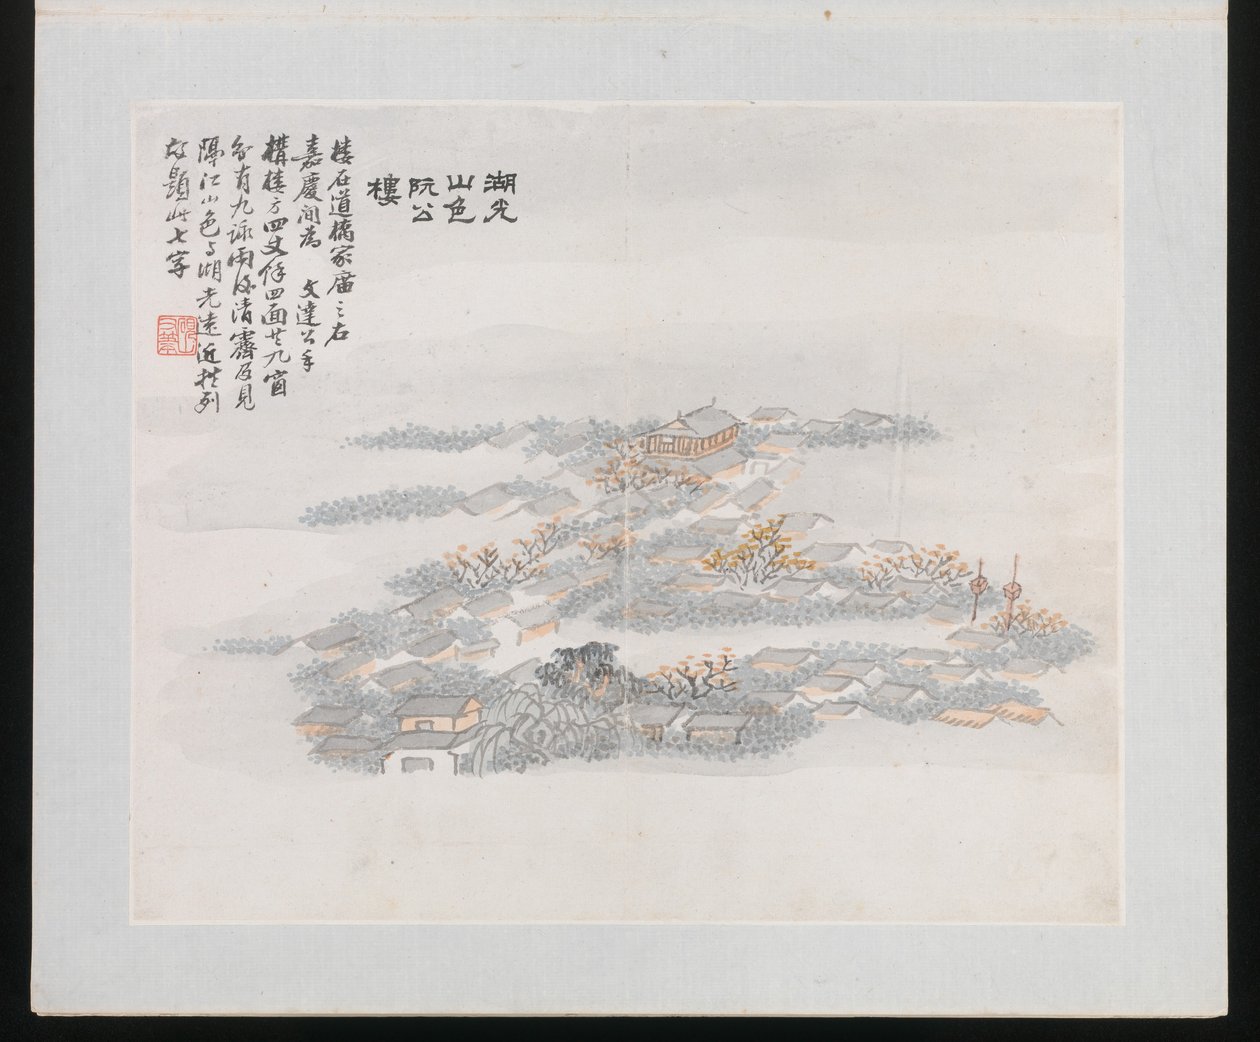 湖光
山色
阮公
樓
楼在道橋家庿之右
嘉慶间為 文達公手
構楼方四丈餘四面共九窗
有九詠雨後清霽及見
隔江山色与湖光遠近排列
故題此七字